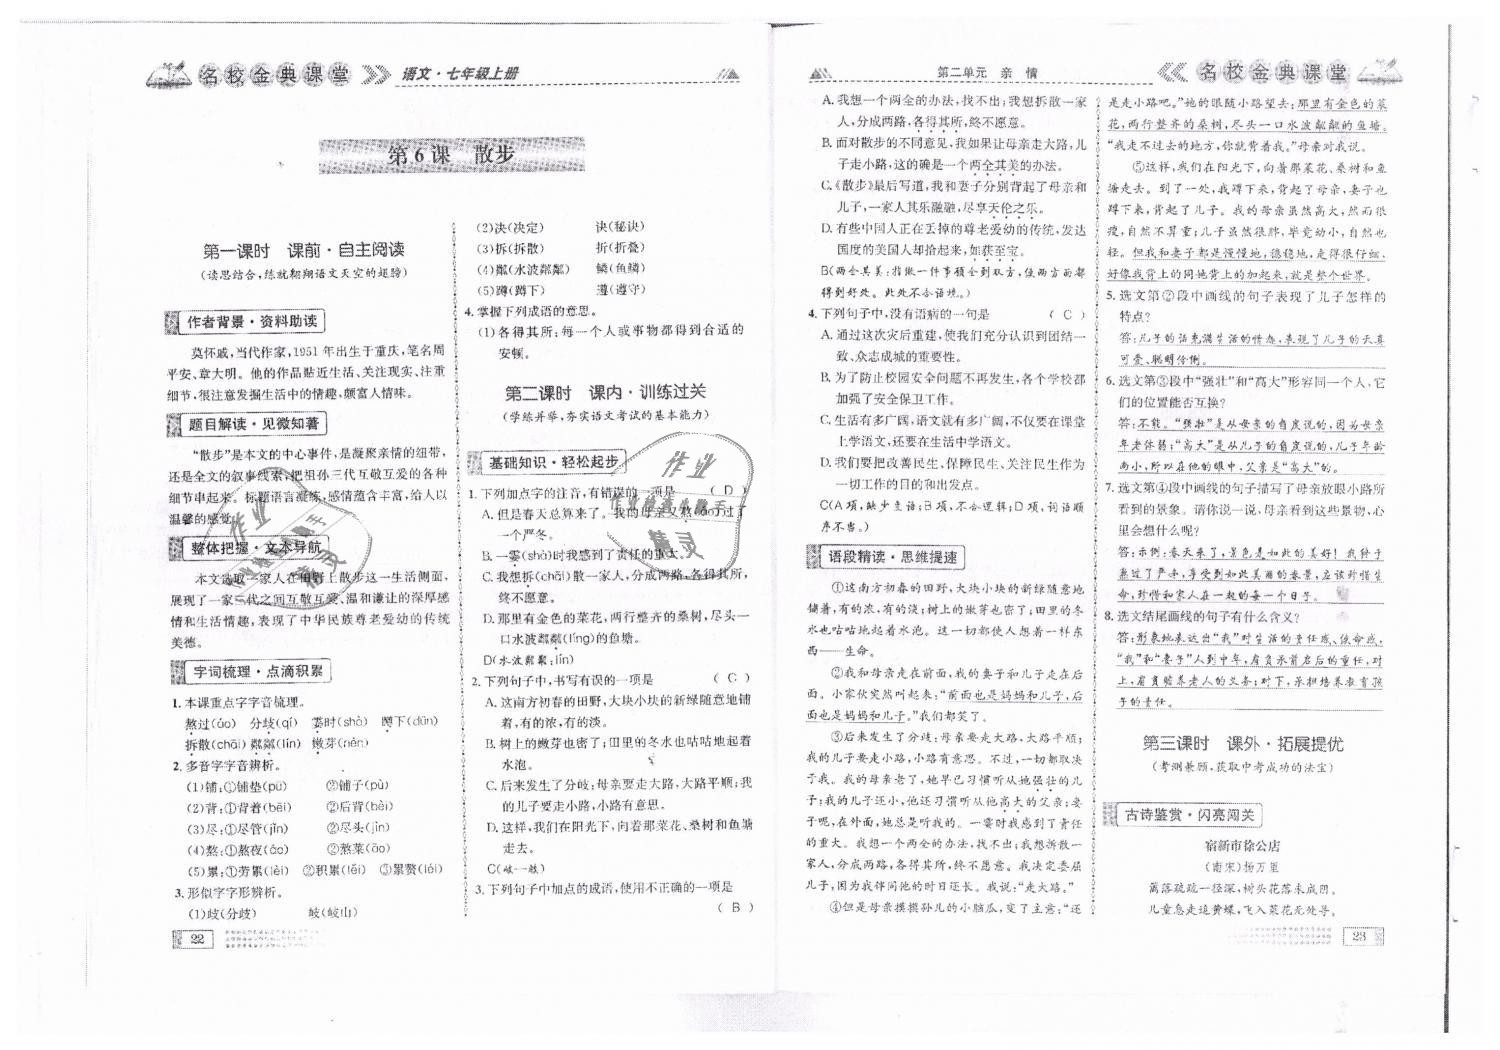 名校金典课堂 语文·七年级上册
第6课 散步
第一课时 课前·自主阅读
(读思结合,练就翱翔语文天空的翅膀)
作者背景·资料助读
莫怀戚,当代作家,1951年出生于重庆,笔名周
平安、章大明。他的作品贴近生活、关注现实、注重
细节,很注意发掘生活中的情趣,颇富人情味。
题目解读·见微知著
“散步”是本文的中心事件,是凝聚亲情的纽带,
还是全文的叙事线索,把祖孙三代互敬互爱的各种
细节串起来。标题语言凝练,感情蕴含丰富,给人以
温馨的感觉。
整体把握·文本导航
本文选取一家人在田野上散步这一生活侧面,
展现了一家三代之间互敬互爱、温和谦让的深厚感
情和生活情趣,表现了中华民族尊老爱幼的传统
美德。
字词梳理·点滴积累
1.本课重点字字音梳理。
熬过(áo) 分歧(qí) 霎时(shà) 蹲下(dūn)
拆散(chāi) 粼粼(lín) 嫩芽(nèn)
2.多音字字音辨析。
(1)铺:①铺垫(pū) ②铺子(pù)
(2)背:①背着(bēi) ②后背(bèi)
(3)尽:①尽管(jǐn) ②尽头(jìn)
(4)熬:①熬夜(áo) ②熬菜(āo)
(5)累:①劳累(lèi) ②积累(lěi) ③累赘(léi)
3.形似字字形辨析。
(1)歧(分歧) 岐(岐山)
22
(2)决(决定) 诀(秘诀)
(3)拆(拆散) 折(折叠)
(4)粼(水波粼粼) 鳞(鱼鳞)
(5)蹲(蹲下) 遵(遵守)
4.掌握下列成语的意思。
(1)各得其所:每一个人或事物都得到合适的
安顿。
第二课时 课内·训练过关
(学练并举,夯实语文考试的基本能力)
基础知识·轻松起步
1.下列加点字的注音,有错误的一项是 ( D )
A.但是春天总算来了。我的母亲又熬(áo)过了
一个严冬。
B.一霎(shà)时我感到了责任的重大。
C.我想拆(chāi)散一家人,分成两路,各得其所,
终不愿意。
D.那里有金色的菜花,两行整齐的桑树,尽头一
口水波粼粼(líng)的鱼塘。
D(水波粼粼:lín)
2.下列句子中,书写有误的一项是 ( C )
A.这南方初春的田野,大块小块的新绿随意地铺
着,有的浓,有的淡。
B.树上的嫩芽也密了;田里的冬水也咕咕地起着
水泡。
C.后来发生了分岐:母亲要走大路,大路平顺;我
的儿子要走小路,小路有意思。
D.这样,我们在阳光下,向着那菜花、桑树和鱼塘
走去。
C(岐—歧)
3.下列句子中加点的成语,使用不正确的一项是
( B )
第二单元 亲 情 名校金典课堂
A.我想一个两全的办法,找不出;我想拆散一家
人,分成两路,各得其所,终不愿意。
B.面对散步的不同意见,我如果让母亲走大路,儿
子走小路,这的确是一个两全其美的办法。
C.《散步》最后写道,我和妻子分别背起了母亲和
儿子,一家人其乐融融,尽享天伦之乐。
D.有些中国人正在丢掉的尊老爱幼的传统,发达
国度的美国人却拾起来,如获至宝。
B(两全其美:指做一件事顾全到双方,使两方面都
得到好处。此处不合语境。)
4.下列句子中,没有语病的一句是 ( C )
A.通过这次灾后重建,使我们充分认识到团结一
致、众志成城的重要性。
B.为了防止校园安全问题不再发生,各个学校都
加强了安全保卫工作。
C.生活有多广阔,语文就有多广阔,不仅要在课堂
上学语文,还要在生活中学语文。
D.我们要把改善民生、保障民生、关注民生作为
一切工作的目的和出发点。
C(A项,缺少主语;B项,不合逻辑;D项,词语顺
序不当。)
语段精读·思维提速
①这南方初春的田野,大块小块的新绿随意地
铺着,有的浓,有的淡;树上的嫩芽也密了;田里的冬
水也咕咕地起着水泡。这一切都使人想着一样东
西——生命。
②我和母亲走在前面,我的妻子和儿子走在后
面。小家伙突然叫起来:“前面也是妈妈和儿子,后
面也是妈妈和儿子。”我们都笑了。
③后来发生了分歧:母亲要走大路,大路平顺;
我的儿子要走小路,小路有意思。不过,一切都取决
于我。我的母亲老了,她早已习惯听从她强壮的儿
子;我的儿子还小,他还习惯听从他高大的父亲;妻
子呢,在外面,她总是听我的。一霎时我感到了责任
的重大。我想一个两全的办法,找不出;我想拆散一
家人,分成两路,各得其所,终不愿意。我决定委屈
儿子,因为我伴同他的时日还长。我说:“走大路。”
④但是母亲摸摸孙儿的小脑瓜,变了主意:“还
是走小路吧。”她的眼随小路望去:那里有金色的菜
花,两行整齐的桑树,尽头一口水波粼粼的鱼塘。
“我走不过去的地方,你就背着我。”母亲对我说。
⑤这样,我们在阳光下,向着那菜花、桑树和鱼
塘走去。到了一处,我蹲下来,背起了母亲,妻子也
蹲下来,背起了儿子。我的母亲虽然高大,然而很
瘦,自然不算重;儿子虽然很胖,毕竟幼小,自然也
轻。但我和妻子都是慢慢地,稳稳地,走得很仔细,
好像我背上的同她背上的加起来,就是整个世界。
5.选文第②段中画线的句子表现了儿子怎样的
特点?
答:儿子的话充满生活的情趣,表现了儿子的天真
可爱、聪明伶俐。
6.选文第③段中“强壮”和“高大”形容同一个人,它
们的位置能否互换?
答:不能。“强壮”是从母亲的角度说的,因为母亲
年老体弱;“高大”是从儿子的角度说的,儿子年龄
尚小,所以在他的眼中,父亲是“高大”的。
7.选文第④段中画线的句子描写了母亲放眼小路所
看到的景象。请你说一说,母亲看到这些景物,心
里会想什么呢?
答:示例:春天来了,景色是如此的美好!我终于
熬过了严冬,享受到如此美丽的春景,应该珍惜生
命,珍惜和家人在一起的每一个日子。
8.选文结尾画线的句子有什么含义?
答:形象地表达出“我”对生活的责任感、使命感,
“我”和“妻子”人到中年,肩负承前启后的重任,对
上,肩负赡养老人的义务;对下,承担培养教育孩
子的责任。
第三课时 课外·拓展提优
(考测兼顾,获取中考成功的法宝)
古诗鉴赏·闪亮闯关
宿新市徐公店
(南宋)杨万里
篱落疏疏一径深,树头花落未成阴。
儿童急走追黄蝶,飞入菜花无处寻。
23